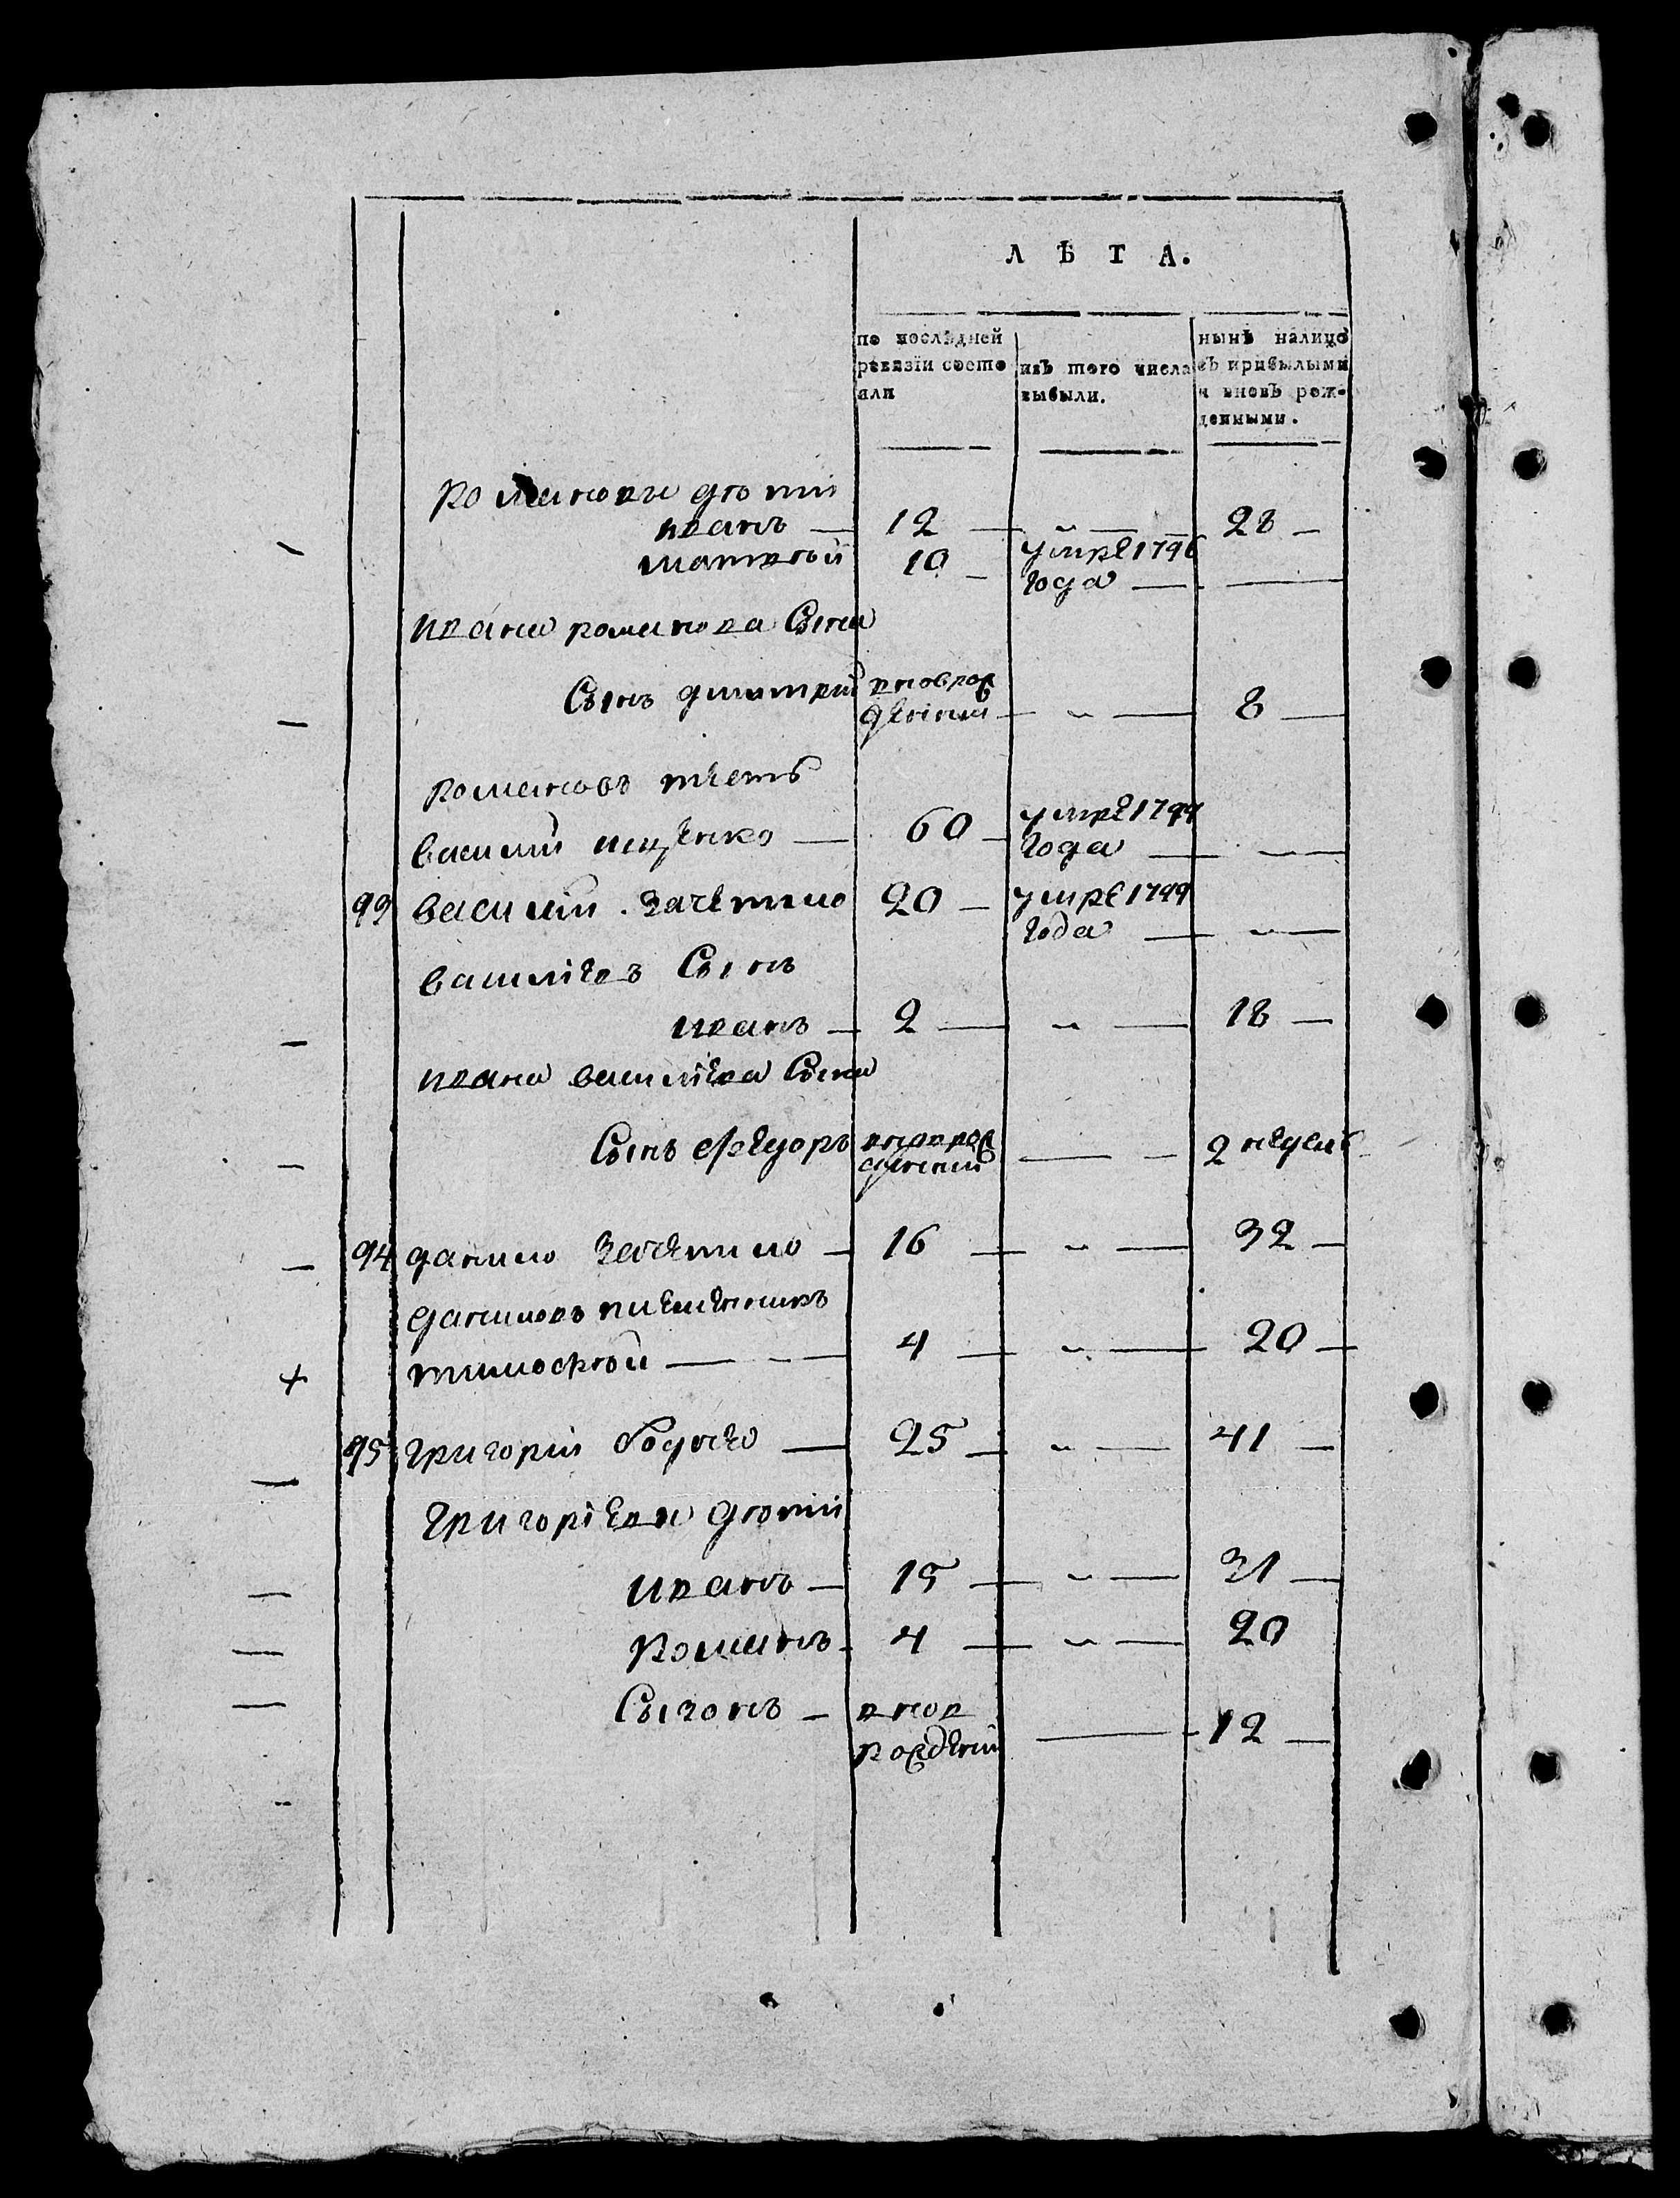 ЛѢТА.
по послѣдней ревизіи состояли
изъ того числа выбыли.
нынѣ налицо съ прибылыми и вновь рожденными.
Романовы дѣти
иванъ — 12 — „ — 28 —
матвѣй 10 — умре 1796
года — —
ивана романова Сына
Сынъ дмитрий вновърож
денный — „ — 8 —
Романовъ тесть
василий ищенко — 60 — умре 1799
года — —
93 василий 20 — умре 1799
года — „ —
василіевъ Сынъ
иванъ — 2 — „ — 18 —
ивана василіева Сына
Сынъ Федоръ вноврож
денный — „ — 2 недели
94 данило — 16 — „ — 32 —
даниловъ племенникъ
тимофѣй — 4 — „ — 20 —
95 григорий — 25 — „ — 41 —
григоріевы дѣти
иванъ — 15 — „ — 31 —
Романъ — 4 — „ — 20
Сызонъ — внов
рожденый — 12 —